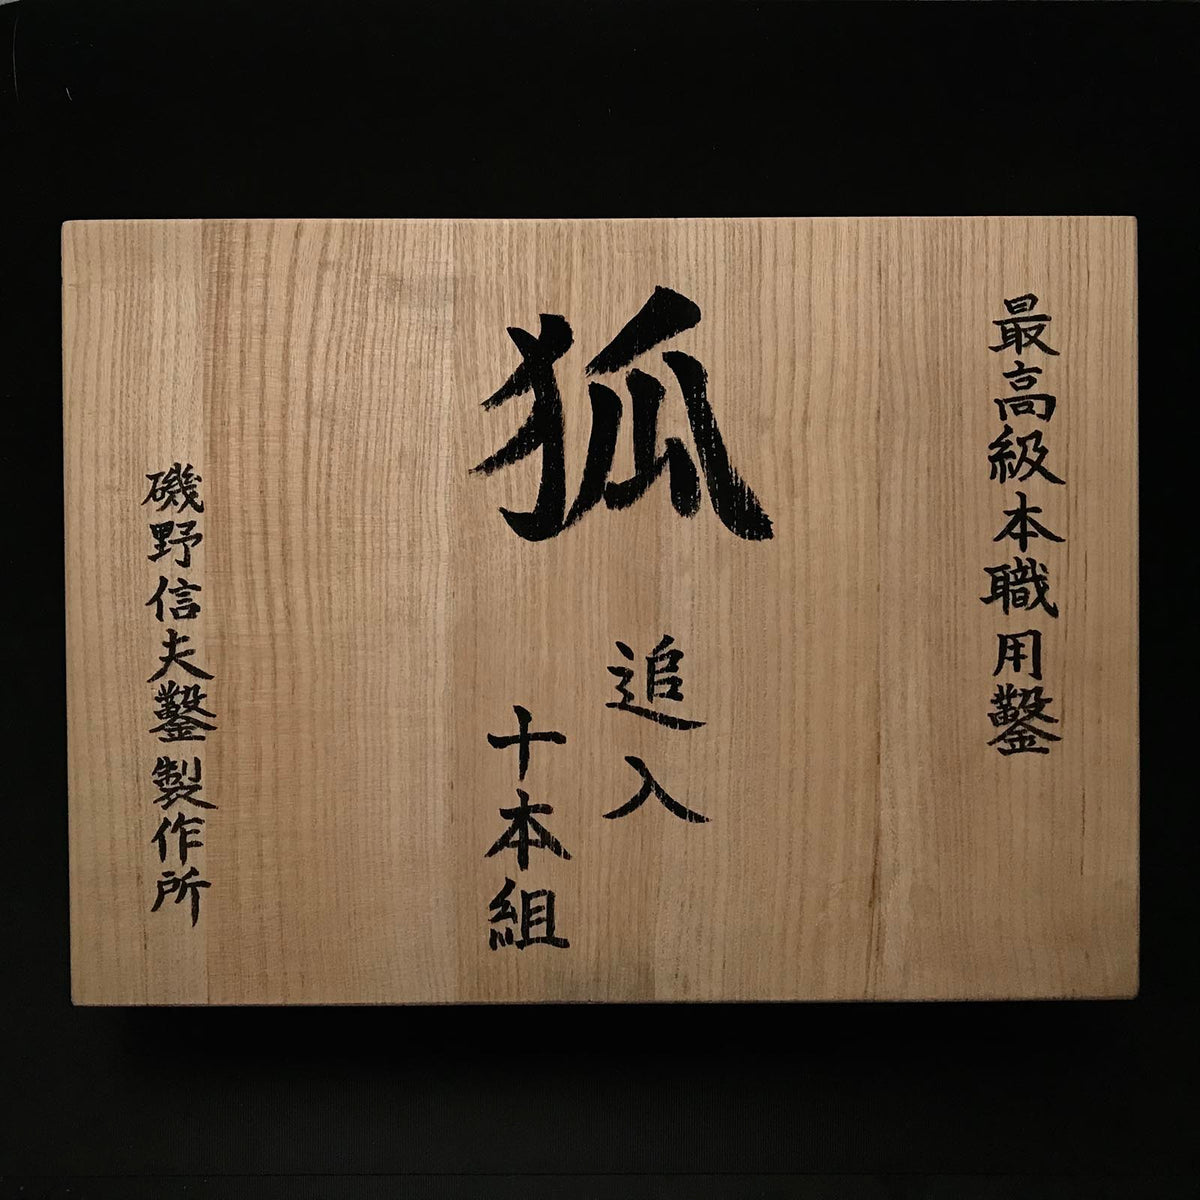 最高級本職用鑿
狐
追入
十本組
磯野信夫鑿製作所